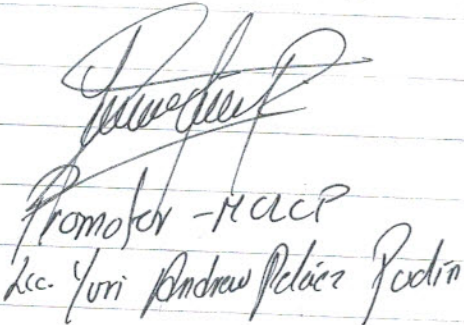 Promotor - MCLCP
Lic. Yuri Andrew Peláez Pudín